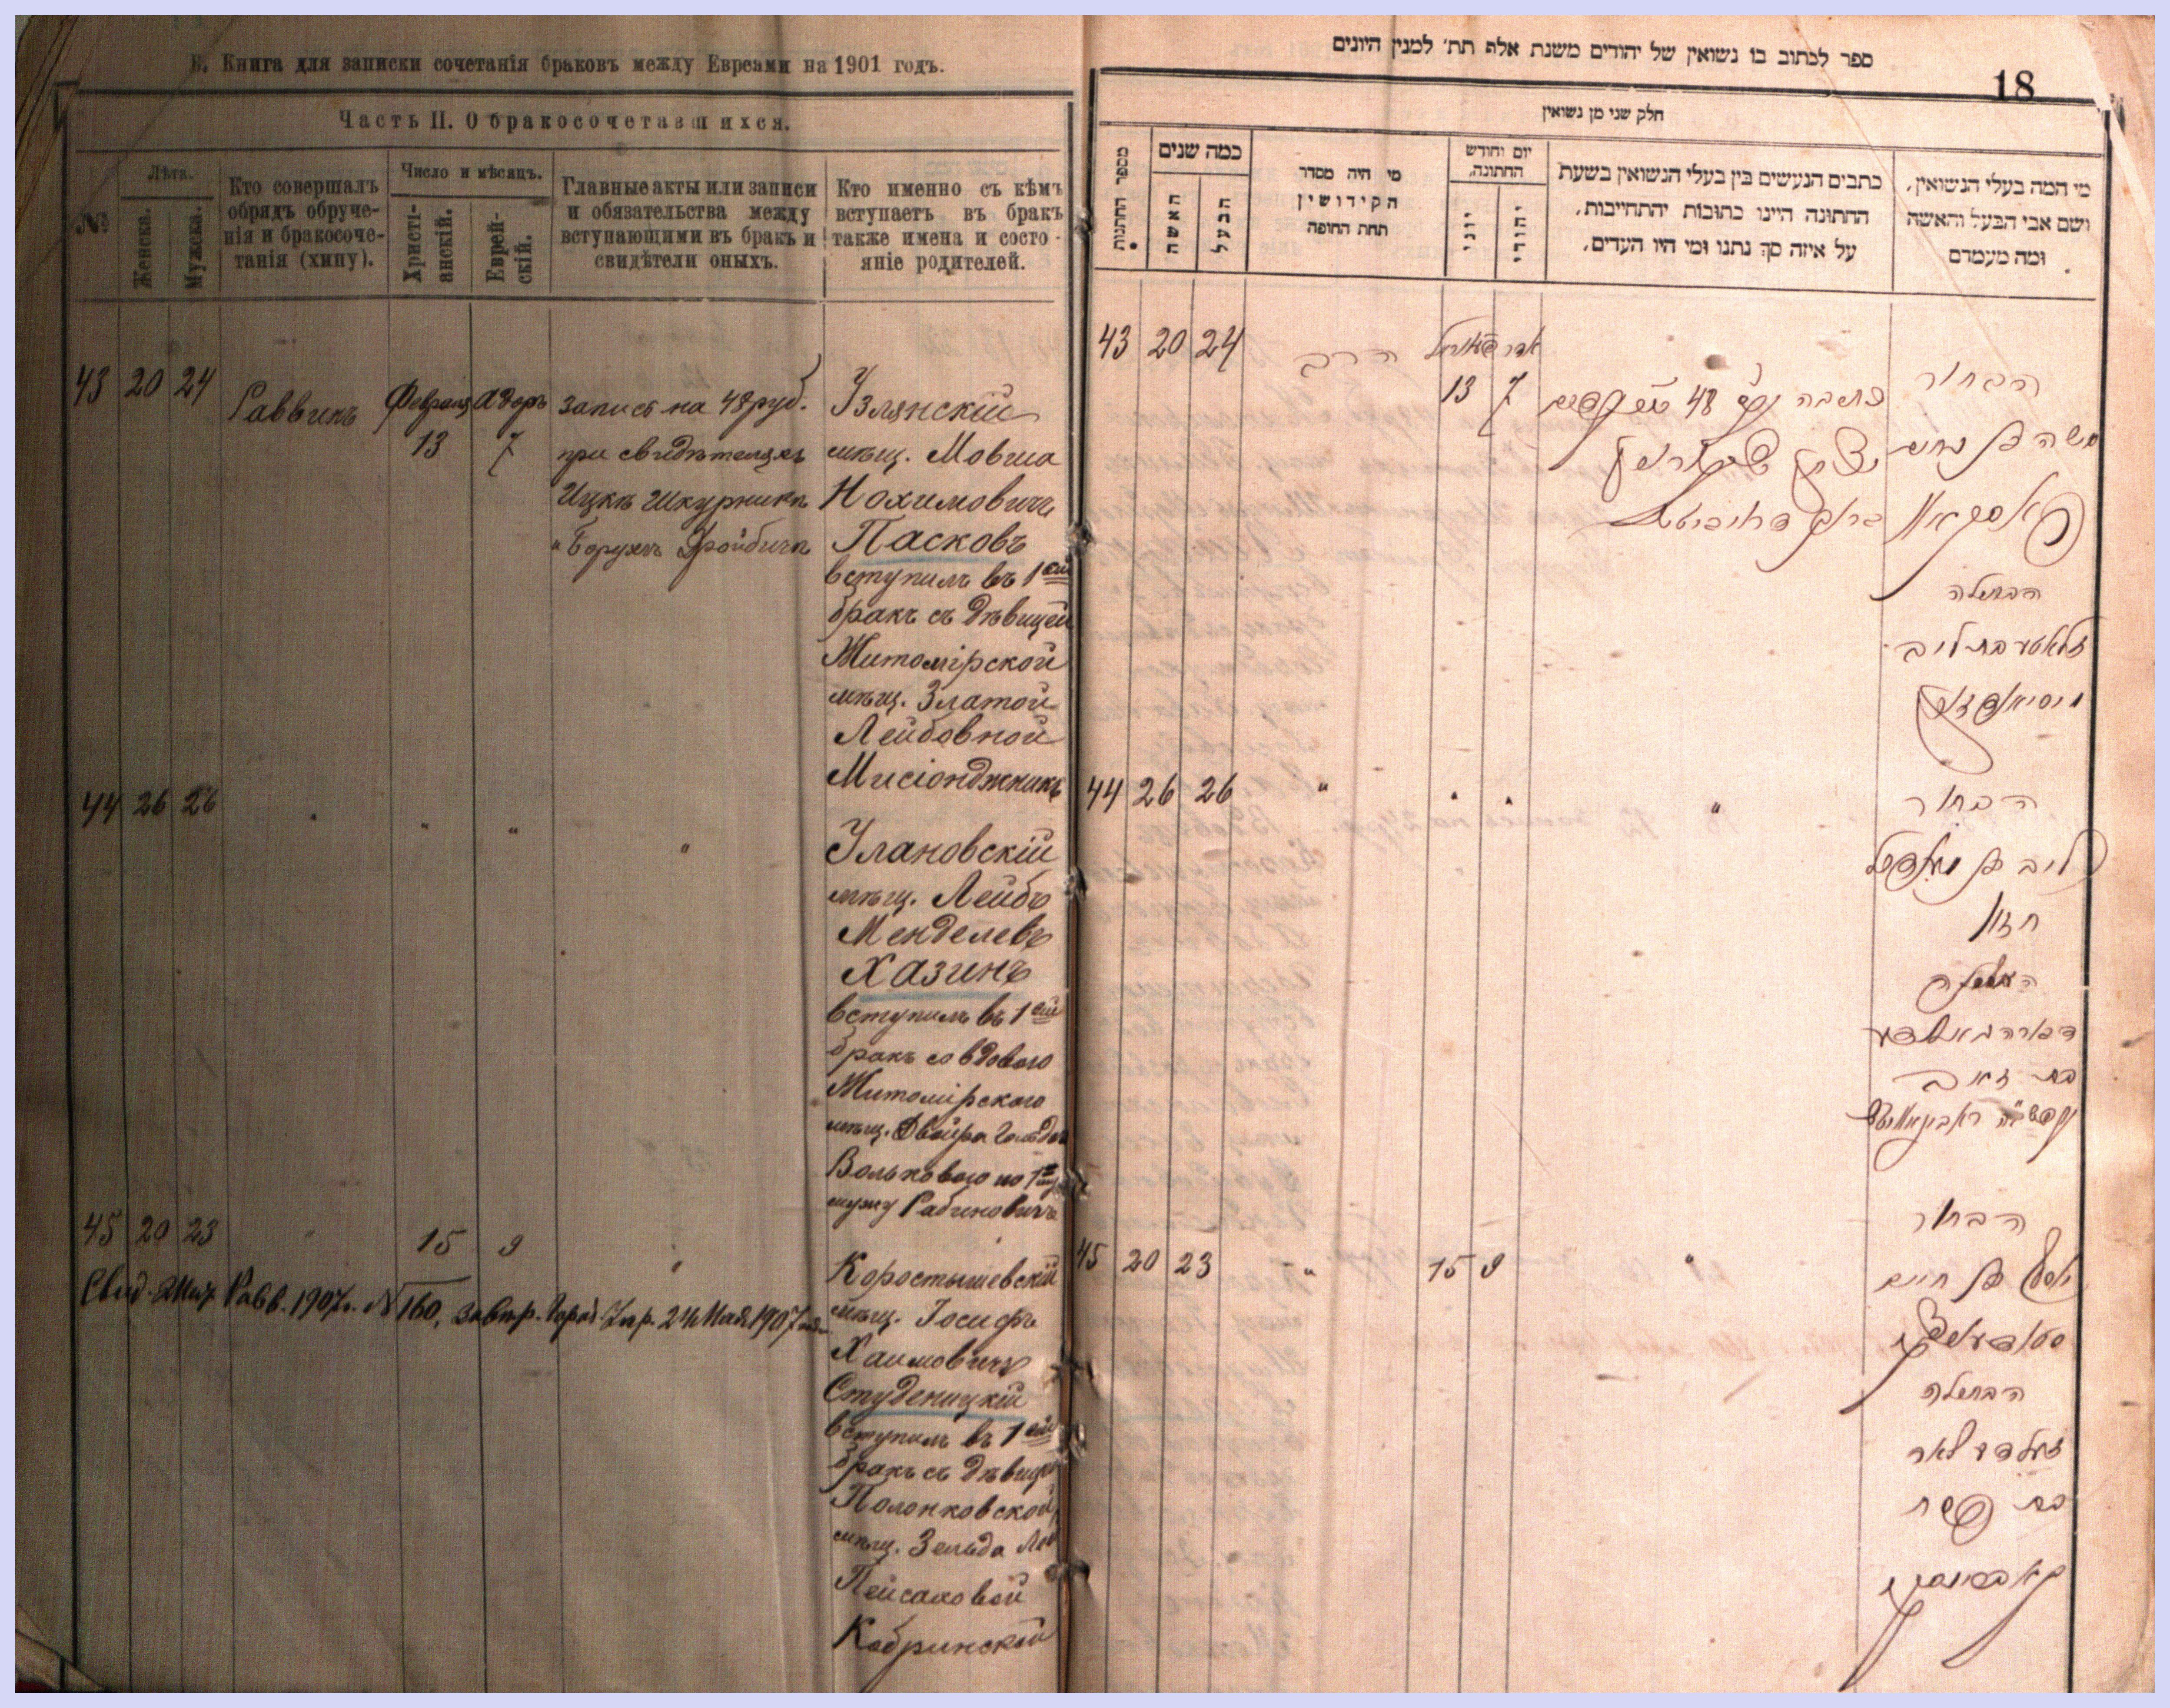 Б. Книга для записки сочетанія браковъ между Евреами на 1901 годъ.
Часть II. О бракосочетавшихся.
№
Лѣта.
Женска.
Мужска.
Кто совершалъ
обрядъ обруче-
нія и бракосоче-
танія (хипу).
Число и мѣсяцъ.
Христі-
анскій.
Еврей-
скій.
Главные акты или записи
и обязательства между
вступающими въ бракъ и
свидѣтели оныхъ.
Кто именно съ кѣмъ
вступаетъ въ бракъ
также имена и состо-
яніе родителей.
43 20 24
Раввинъ
Февраля
13
Адоръ
7
запись на 48 руб.
при свидѣтеляхъ
Ицкъ Шкурникъ
Борухъ
Узлянскій
мѣщ. Мовша
Нохимовичъ
Пасковъ
вступилъ въ 1ый
бракъ съ дѣвицей
Житомірской
мѣщ. Златой
Лейбовной
Мисіонджникъ
44 26 26 " " " "
Улановскій
мѣщ. Лейбъ
Менделевъ
Хазинъ
вступилъ въ 1ый
бракъ со вдовою
Житомірскою
мѣщ. Двойра
Вольковою по 1му
мужу Рабиновичъ
45 20 23 " 15 9 "
Свид. Жит. Равв. 1907 г. № 160, 24 Мая 1907
Коростышевскій
мѣщ. Іосифъ
Хаимовичъ
Студеницкій
вступилъ въ 1ый
бракъ съ дѣвицей
Полонковской
мѣщ. Зельда
Пейсаховой
Кобринской
ספר לכתוב בו נשואין של יהודים משנת אלף תת׳ למנין היונים
18
חלק שני מן נשואין
מספר החתונות
כמה שנים
האשה
הבעל
מי היה מסדר
הקידושין
תחת החופה
יום וחודש
החתונה,
יוני
יהודי
כתבים הנעשים בין בעלי הנשואין בשעת
החתונה היינו כתובות יהתחייבות,
על איזה סך נתנו ומי היו העדים,
מי המה בעלי הנשואין,
ושם אבי הבעל והאשה
ומה מעמדם
43 20 24
הרב
13
אדר
7
כתובה 48
הבחור
משה בן נחום
הבתולה
זלאטע בת ליב
44 26 26 " " " "
הבחור
ליב בן מענדיל
חזון
האלמנה
בת זאב
45 20 23 " 15 9 "
הבחור
יוסף בן חיים
הבתולה
בת פסח